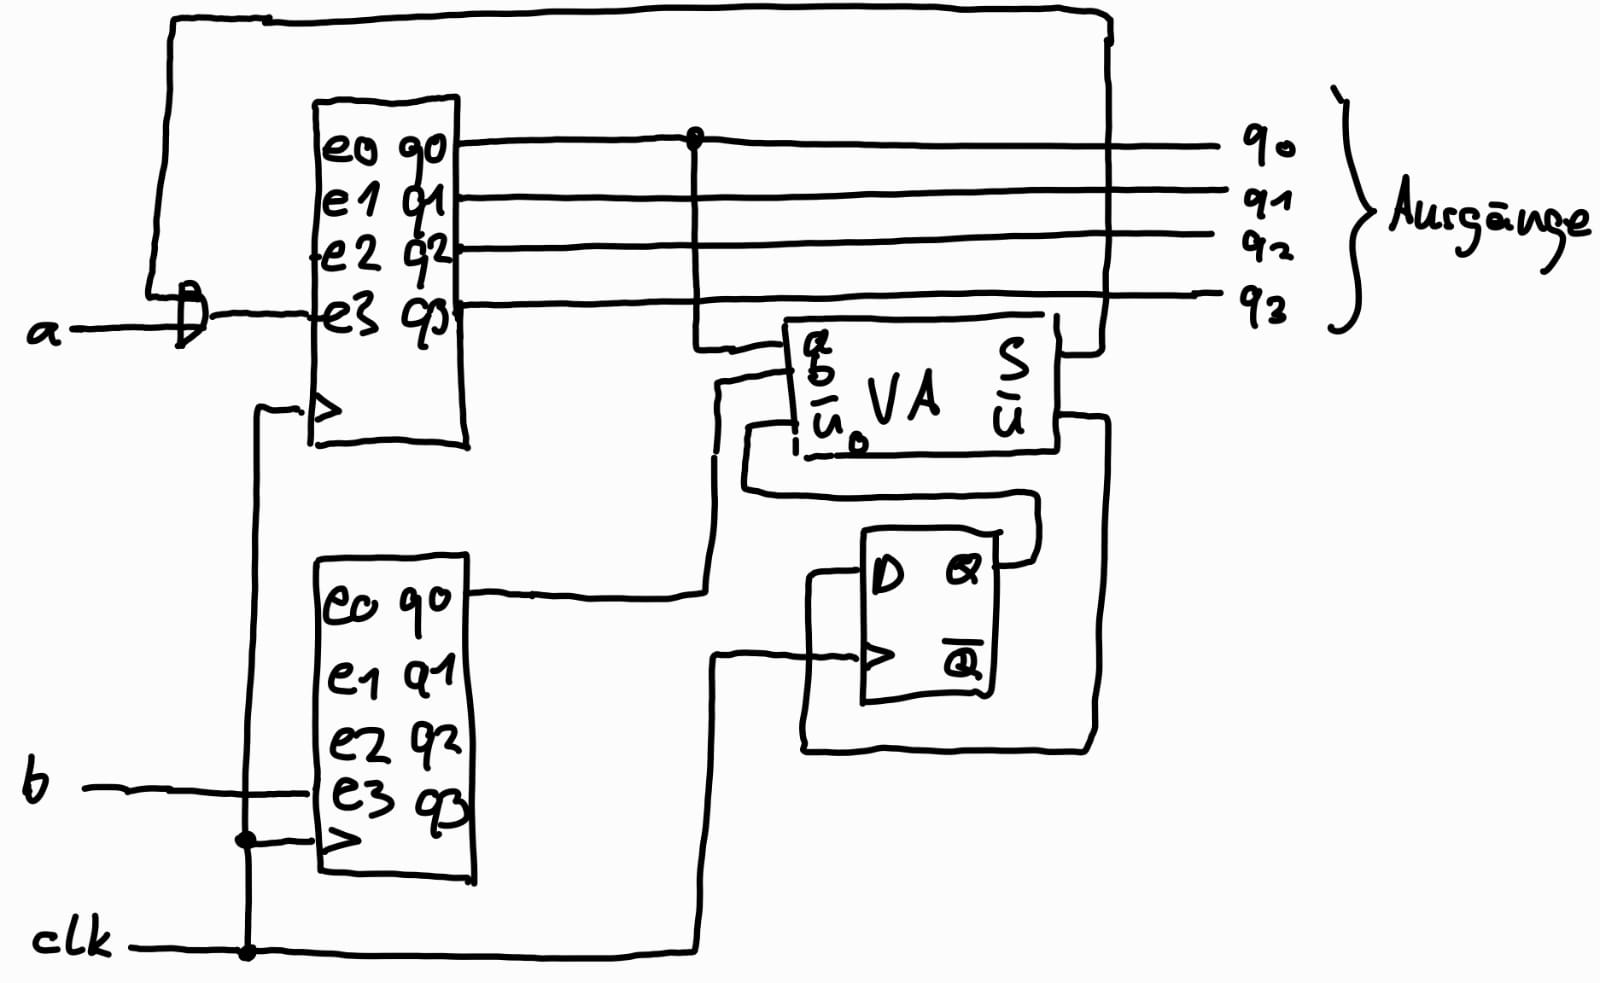 e0 q0
e1 q1
e2 q2
e3 q3
a
q0
q1
q2
q3
Ausgänge
a
b
ū0
VA
S
ū
e0 q0
e1 q1
e2 q2
e3 q3
D Q
Q̅
b
clk